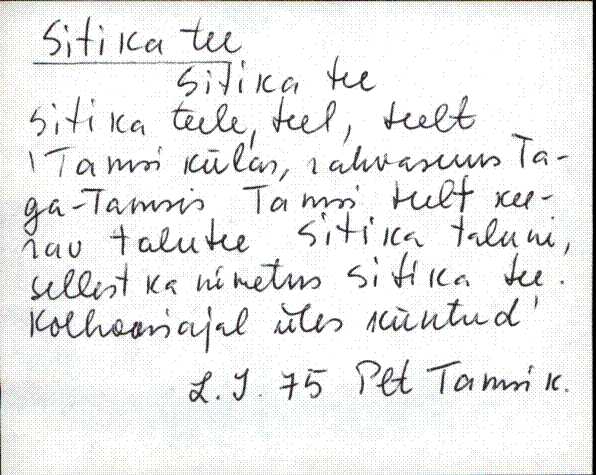 Sitika tee
Sitika tee
Sitika teele, teel, teelt
'Tamsi külas, rahvasuus Ta-
ga-Tamsis Tamsi teelt kee-
rav talutee Sitika taluni,
sellest ka nimetus Sitika tee.
Kolhoosiajal üles küntud'
L.J. 75 Plt Tamsi k.